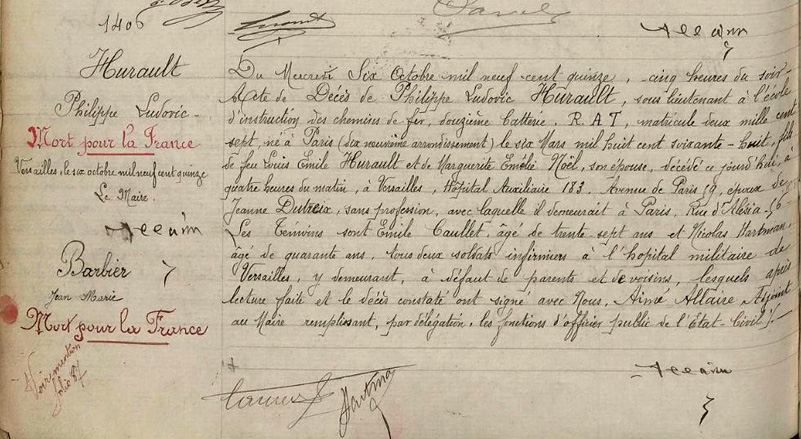 1406
Hurault
Philippe Ludovic
Mort pour la France
Versailles, le six octobre mil neuf cent quinze
Le Maire.
Barbier
Jean Marie
Mort pour la France
Voir mention
folio 87
Du Mercredi Six Octobre mil neuf cent quinze, cinq heures du soir
Acte de Décès de Philippe Ludovic Hurault, sous lieutenant à l'école
d'instruction des chemins de fer, douzième batterie. R.A.T, matricule deux mille cent
sept, né à Paris (dix neuvième arrondissement) le six Mars mil huit cent soixante-huit, fils
de feu Louis Emile Hurault et de Marguerite Emélie Noël, son épouse, décédé ce jourd'hui, à
quatre heures du matin, à Versailles, Hôpital Auxiliaire 183. Avenue de Paris 59, époux de
Jeanne Dutreix, sans profession, avec laquelle il demeurait à Paris. Rue d'Alésia
Les Témoins sont Emile Caullet, âgé de trente sept ans et Nicolas Hartman,
âgé de quarante ans, tous deux soldats infirmiers à l'hopital militaire de
Versailles, y demeurant, à défaut de parents et de voisins, lesquels après
lecture faite et le décès constaté ont signé avec Nous, Aimé Allaire Adjoint
au Maire remplissant, par délégation, les fonctions d'officier public de l'Etat-Civil
Hartman